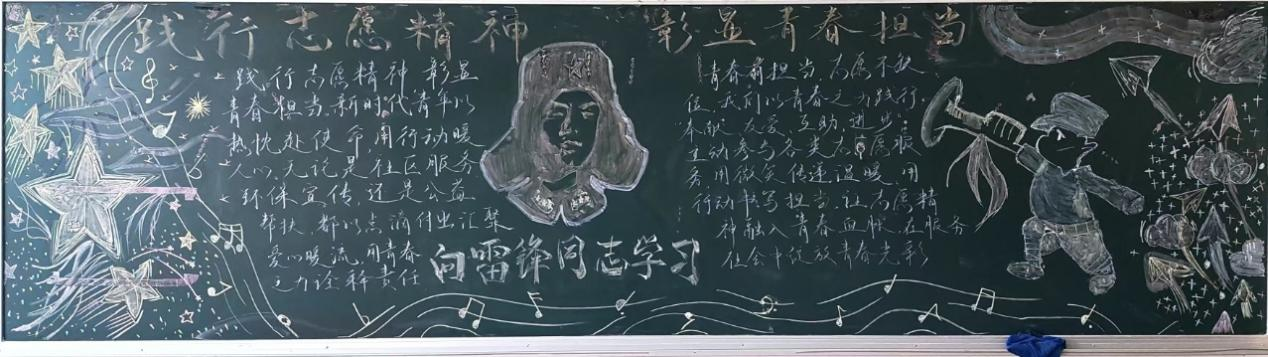 践行志愿精神 彰显青春担当
践行志愿精神,彰显
青春担当,新时代青年以
热忱赴使命,用行动暖
人心,无论是社区服务
环保宣传,还是公益
帮扶,都以点滴付出汇聚
爱心暖流,用青春
之力诠释责任
向雷锋同志学习
青春有担当,志愿不缺
位,我们以青春之力践行,
奉献、友爱、互助、进步,
主动参与各类志愿服
务用微笑传递温暖,用
行动书写担当,让志愿精
神融入青春血脉,在服务
社会中绽放青春光彩